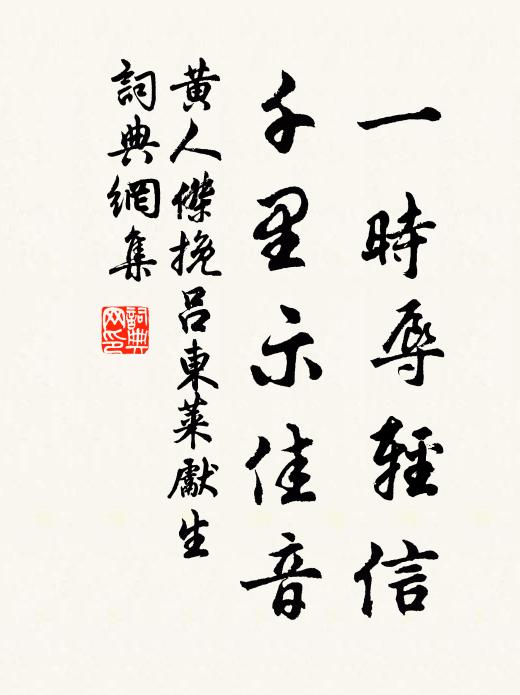 一時辱輕信
千里示佳音
黃人傑挽呂東萊獻生
詞典網集
詞典网印